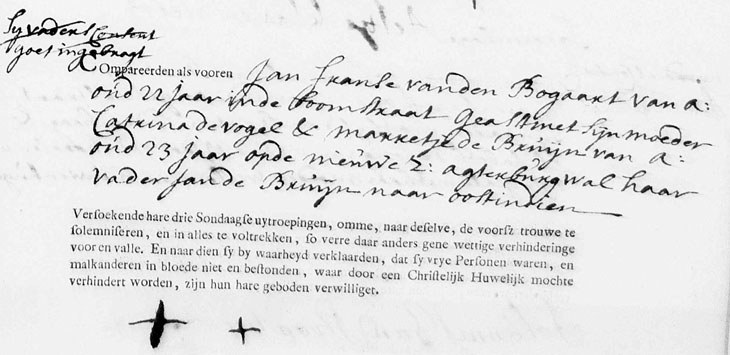 Sy vaders Consent
goet ingebragt
COmpareerden als vooren Jan franse vanden Bogaart van a:
oud 22 Jaar inde boomstraat geasst met sijn moeder
Catrina de vogel & marretje de Bruijn van a:
oud 23 Jaar opde nieuwe z: agterburgwal haar
vader Jan de Bruijn naar oostindien
Versoekende hare drie Sondaagse uytroepingen, omme, naar deselve, de voorsz trouwe te
solemniseren, en in alles te voltrekken, so verre daar anders gene wettige verhinderinge
voor en valle. En naar dien sy by waarheyd verklaarden, dat sy vrye Personen waren, en
malkanderen in bloede niet en bestonden, waar door een Christelijk Huwelijk mochte
verhindert worden, zijn hun hare geboden verwilliget.